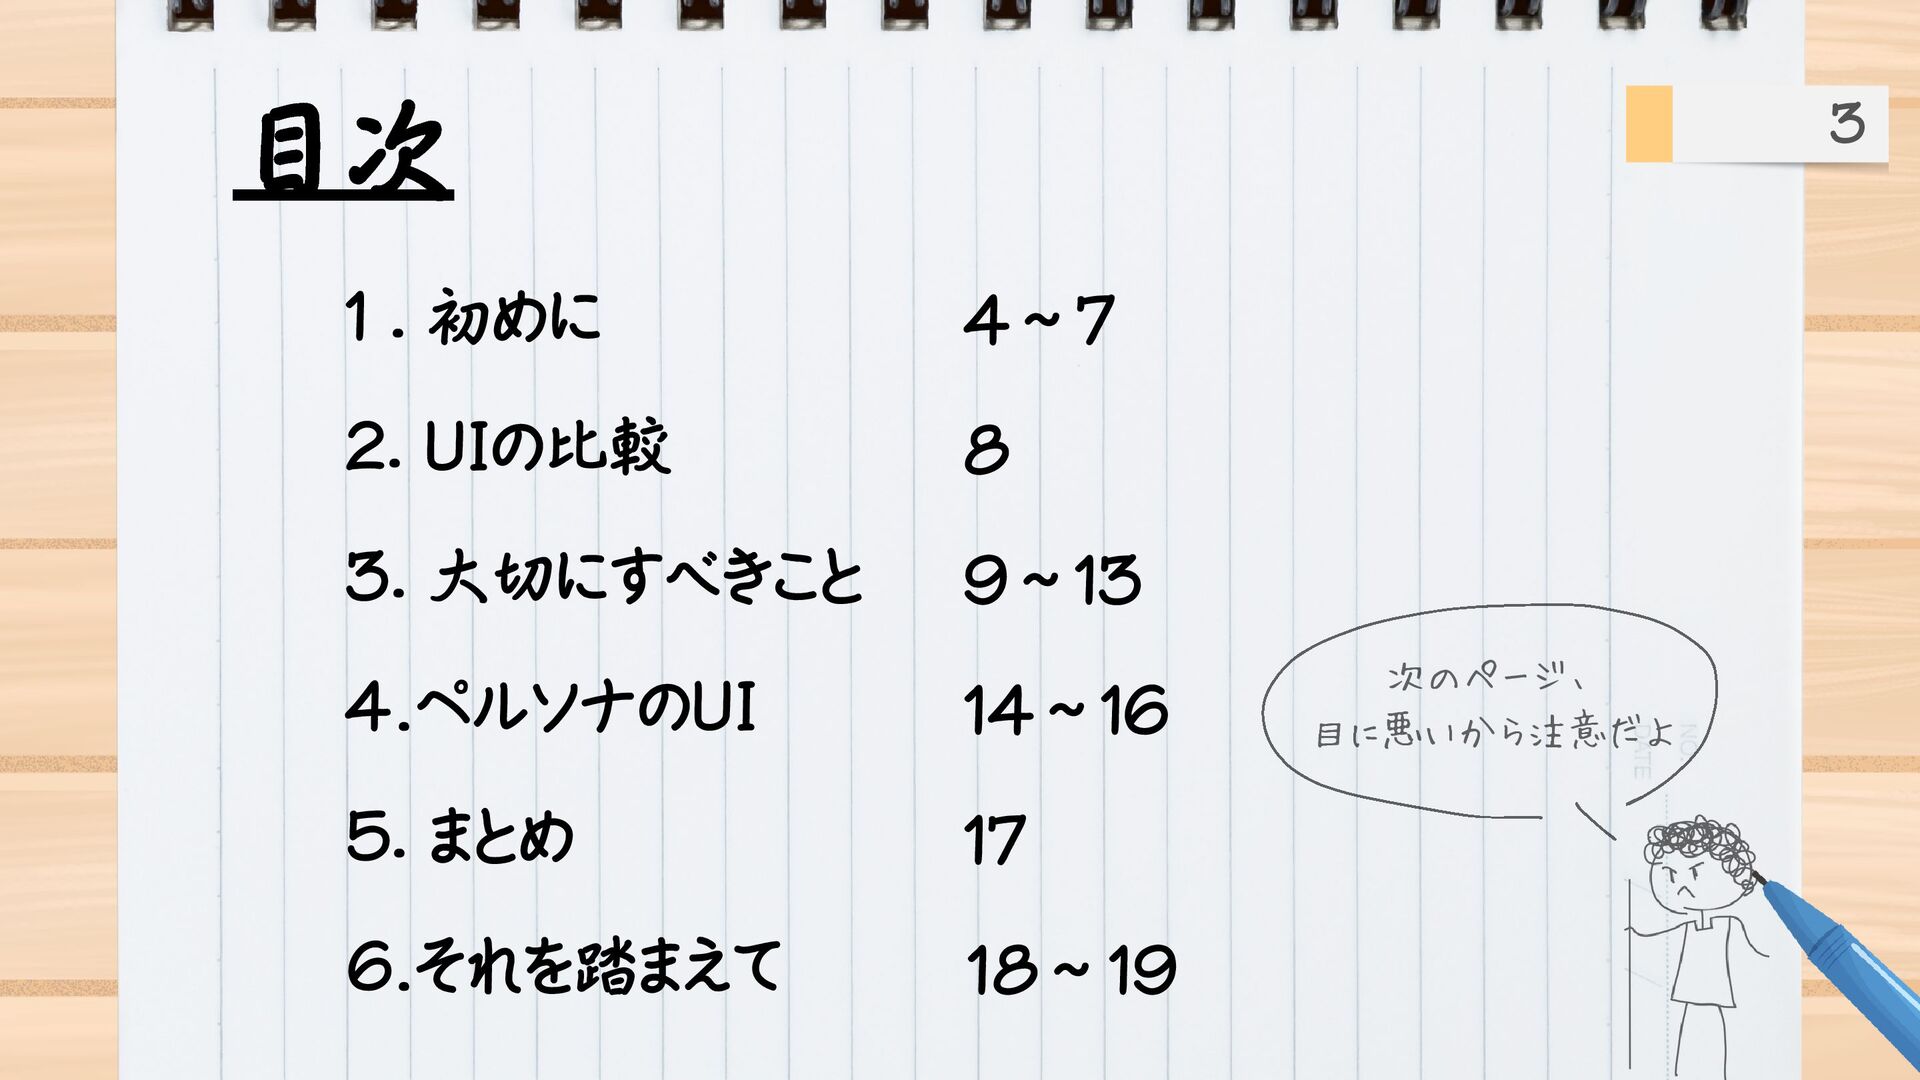 3
目次
1. 初めに 4~7
2. UIの比較 8
3. 大切にすべきこと 9~13
4.ペルソナのUI 14~16
5. まとめ 17
6.それを踏まえて 18~19
次のページ、
目に悪いから注意だよ
NO.
DATE